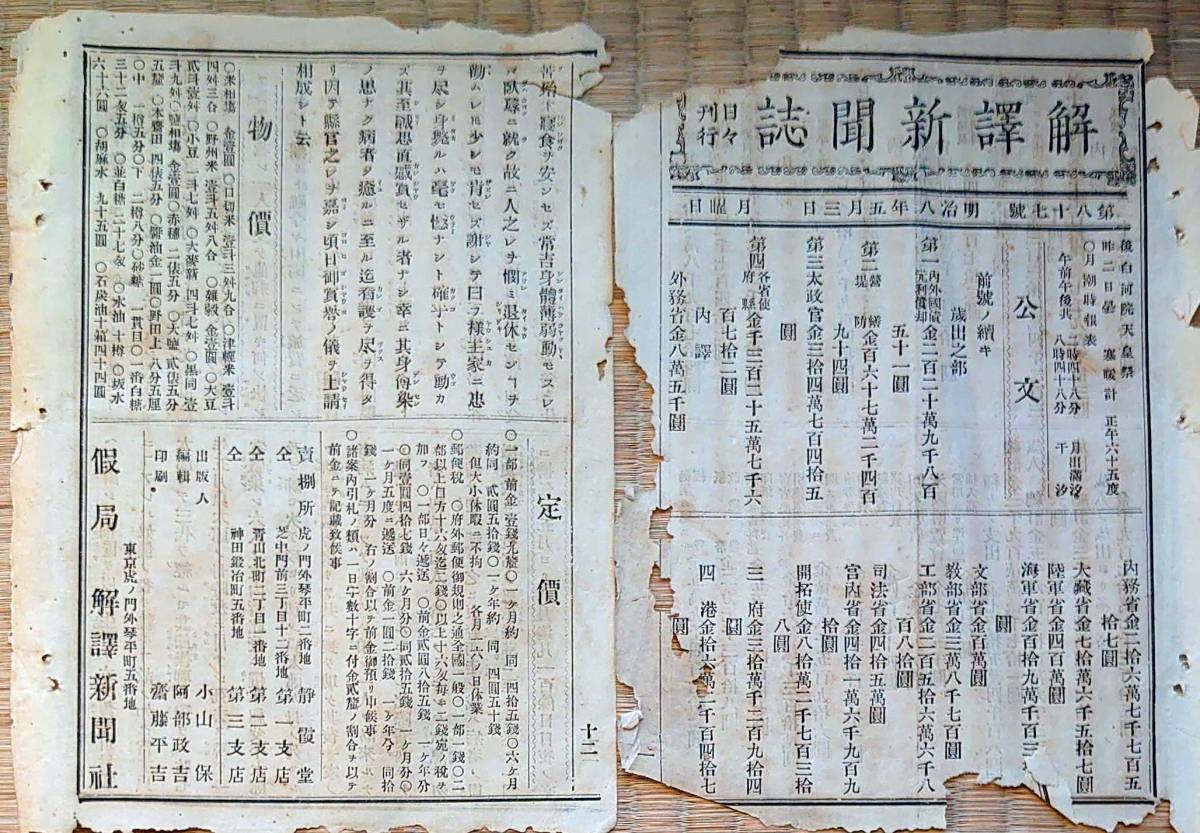 解譯新聞誌
日々
刊行
第八十七號 明治八年五月三日 月曜日
後白河院天皇祭
昨二日曇 寒暖計 正午六十五度
〇月潮時報表
午前午後共 二時四十八分 八時四十八分 月出滿汐 干汐
公文
前號ノ續キ
歳出之部
第一內外國債元利償却金二百二十萬九千八百
五十一圓
第二營繕堤防金百六十七萬二千四百
九十四圓
第三太政官金三拾四萬七百四拾五
圓
第四各省使府縣金千三百二十五萬七千六
百七拾二圓
內譯
外務省金八萬五千圓
內務省金二拾六萬七千七百五
拾七圓
大藏省金七拾萬六千五拾七圓
陸軍省金四百萬圓
海軍省金百拾九萬千三百
圓
文部省金百萬圓
敎部省金三萬八千七百圓
工部省金二百五拾六萬六千八
百八拾圓
司法省金四拾五萬圓
宮內省金四拾一萬六千九百九
拾圓
開拓使金八拾萬二千七百三拾
八圓
三府金三拾萬千二百九拾四
圓
四港金拾六萬二千百四拾七
圓
苦殆ト寢食ヲ安ンセズ常吉身體薄弱動モスレ
バ臥蓐ニ就ク故ニ人之レヲ憫ミ退休セシヿヲ
勸ムレ𪜈少シモ肯セズ謝シテ曰ク様主家ニ忠
ヲ尽シ身斃ルハ毫モ憾ナシト確乎トシテ動カ
ズ其至誠忠直感賞セザル者ナシ幸ニ其身傳染
ノ患ナク病者ヲ癒ルニ至ル迄看護ヲ尽ヲ得タ
リ因テ縣官之レヲ嘉シ頃日御賞譽ノ儀ヲ上請
相成シト云
物價
〇米相塲 金壹圓 〇口切米 壹斗三舛九合 〇津輕米 壹斗
四舛三合 〇野州米 壹斗五舛八合 〇雜穀 金壹圓 〇大豆
貳斗壹舛 〇小豆 一斗七舛 〇大麥新 四斗七舛 〇黑同 壹
斗九舛 〇鹽相塲 金壹圓 〇赤穗 二俵五分 〇大鹽 貳俵五分
五釐 〇本齋田 四俵五分 〇醬油金一圓 〇野田上 一八分五厘
〇中 一樽五分 〇下 二樽八分 〇砂糖 一貫目 〇一番白糖
三十二匁五分 〇並白糖二十七匁 〇水油 十樽 〇坂水
六十六圓 〇胡麻水 九十五圓 〇石炭油十箱四十四圓
定價
〇一部 前金 壹錢九釐 〇一ヶ月約 同 四拾五錢 〇六ヶ月
約同 貳圓五拾錢 〇一ヶ年約 同 四圓五十錢
但大小休暇ニ不拘 各月一六ノ日休業
〇郵便税 〇府外郵便御規則之通全國一般 〇一部一錢 〇二
部以上目方十六匁迄二錢 〇以上十六匁每ニ二錢宛ノ税ヲ
加フ 〇一部日々遞送 〇前金貳圓八拾五錢 一ヶ年分
〇同壹圓四拾七錢 六ヶ月分 〇同貳拾五錢 一ヶ月分 〇
一ヶ月五度ニ遞送 〇前金一圓二拾錢 一ヶ年分 同拾
錢 一ヶ月分 右ノ割合以テ前金御預リ申候事
〇諸案內引札ノ類ハ 一日一字數十字ニ付金貳釐ノ割合ヲ以テ
前金ニテ記載致候事
賣捌所 虎ノ門外琴平町二番地 靜霞堂
仝 芝中門前三丁目十二番地 第一支店
仝 靑山北町二丁目一番地 第二支店
仝 神田鍛冶町五番地 第三支店
出版人 小山保
編輯 阿部政吉
印刷 齋藤平吉
東京虎ノ門外琴平町五番地
假局 解譯新聞社
十二